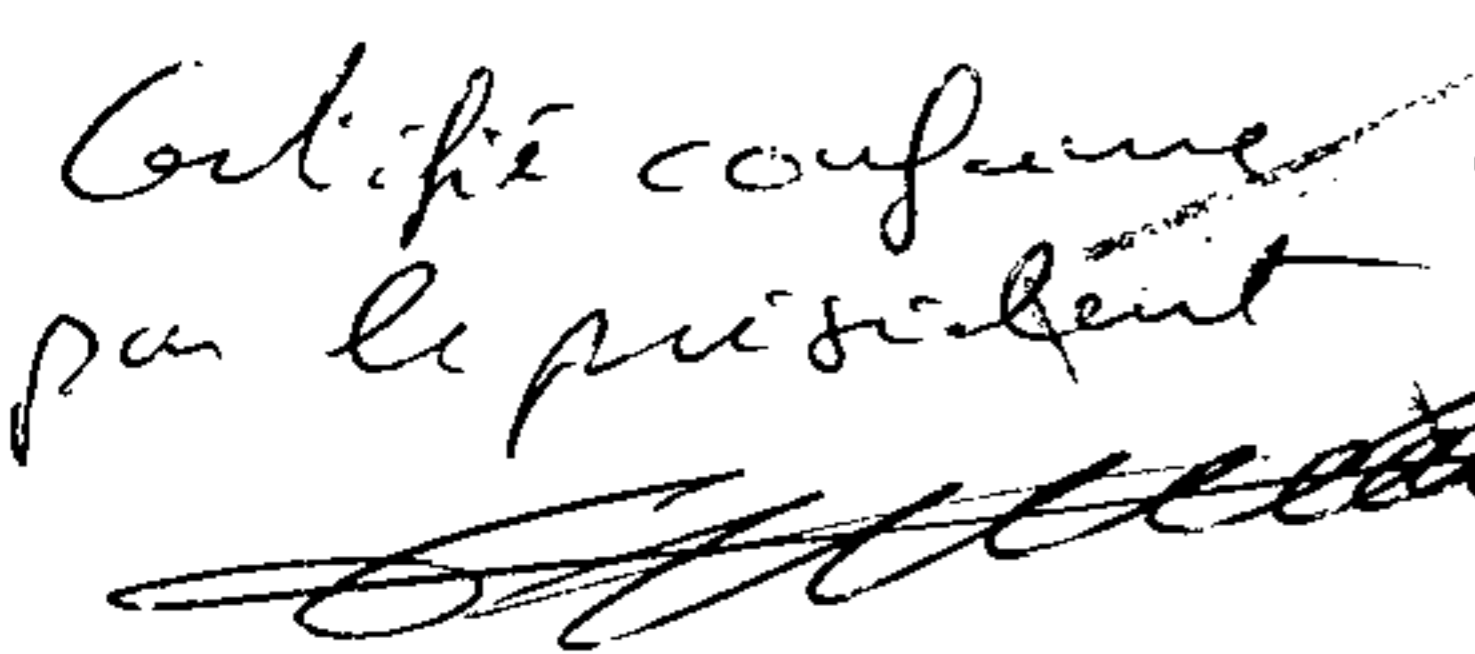 Certifié conforme
par le président